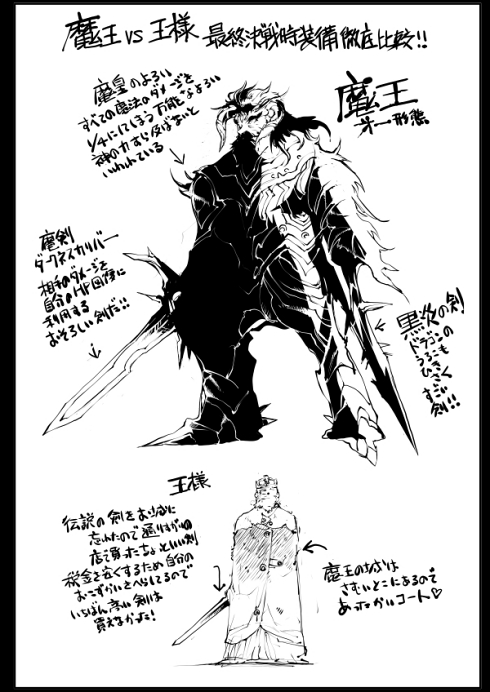 魔王 vs 王様 最終決戦時装備徹底比較!!
魔王
オー形態
魔皇のよろい
すべての魔法のダメージを
1/4にしてしまう万能なよろい
神の力すら及ばないと
いわれている
魔剣
ダークネスカリバー
相手のダメージを
自分のHP回復に
利用する
おそろしい剣だ!!
黒炎の剣
ドラゴンの
うろこも
ひきさく
すごい
剣!!
王様
伝説の剣をお城に
忘れたので通りすがりの
店で買ったちょっといい剣
税金を安くするため自分の
おこづかいをへらしてるので
いちばん高い剣は
買えなかった!
魔王のお城は
さむいとこにあるので
あったかいコート♡